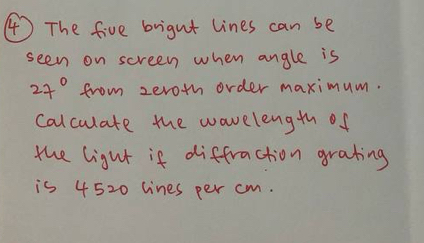 4 The five bright lines can be
seen on screen when angle is
27° from zeroth order maximum.
Calculate the wavelength of
the light if diffraction grating
is 4520 lines per cm.